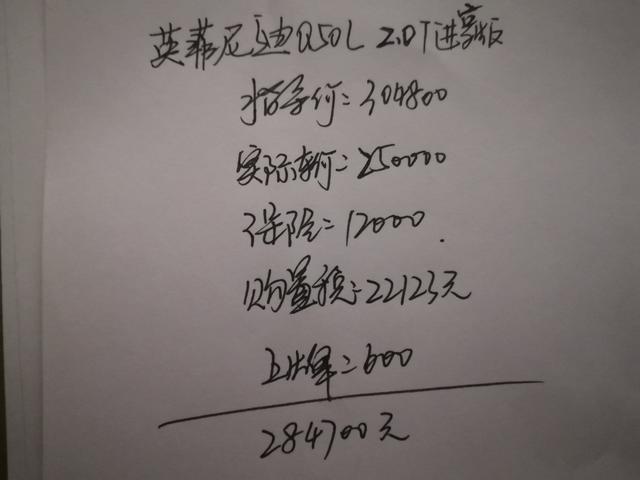 英菲尼迪Q50L 2.0T进享版
指导价=304800
实际车价=250000
保险=12000
购置税=22123元
上牌=600
284700元